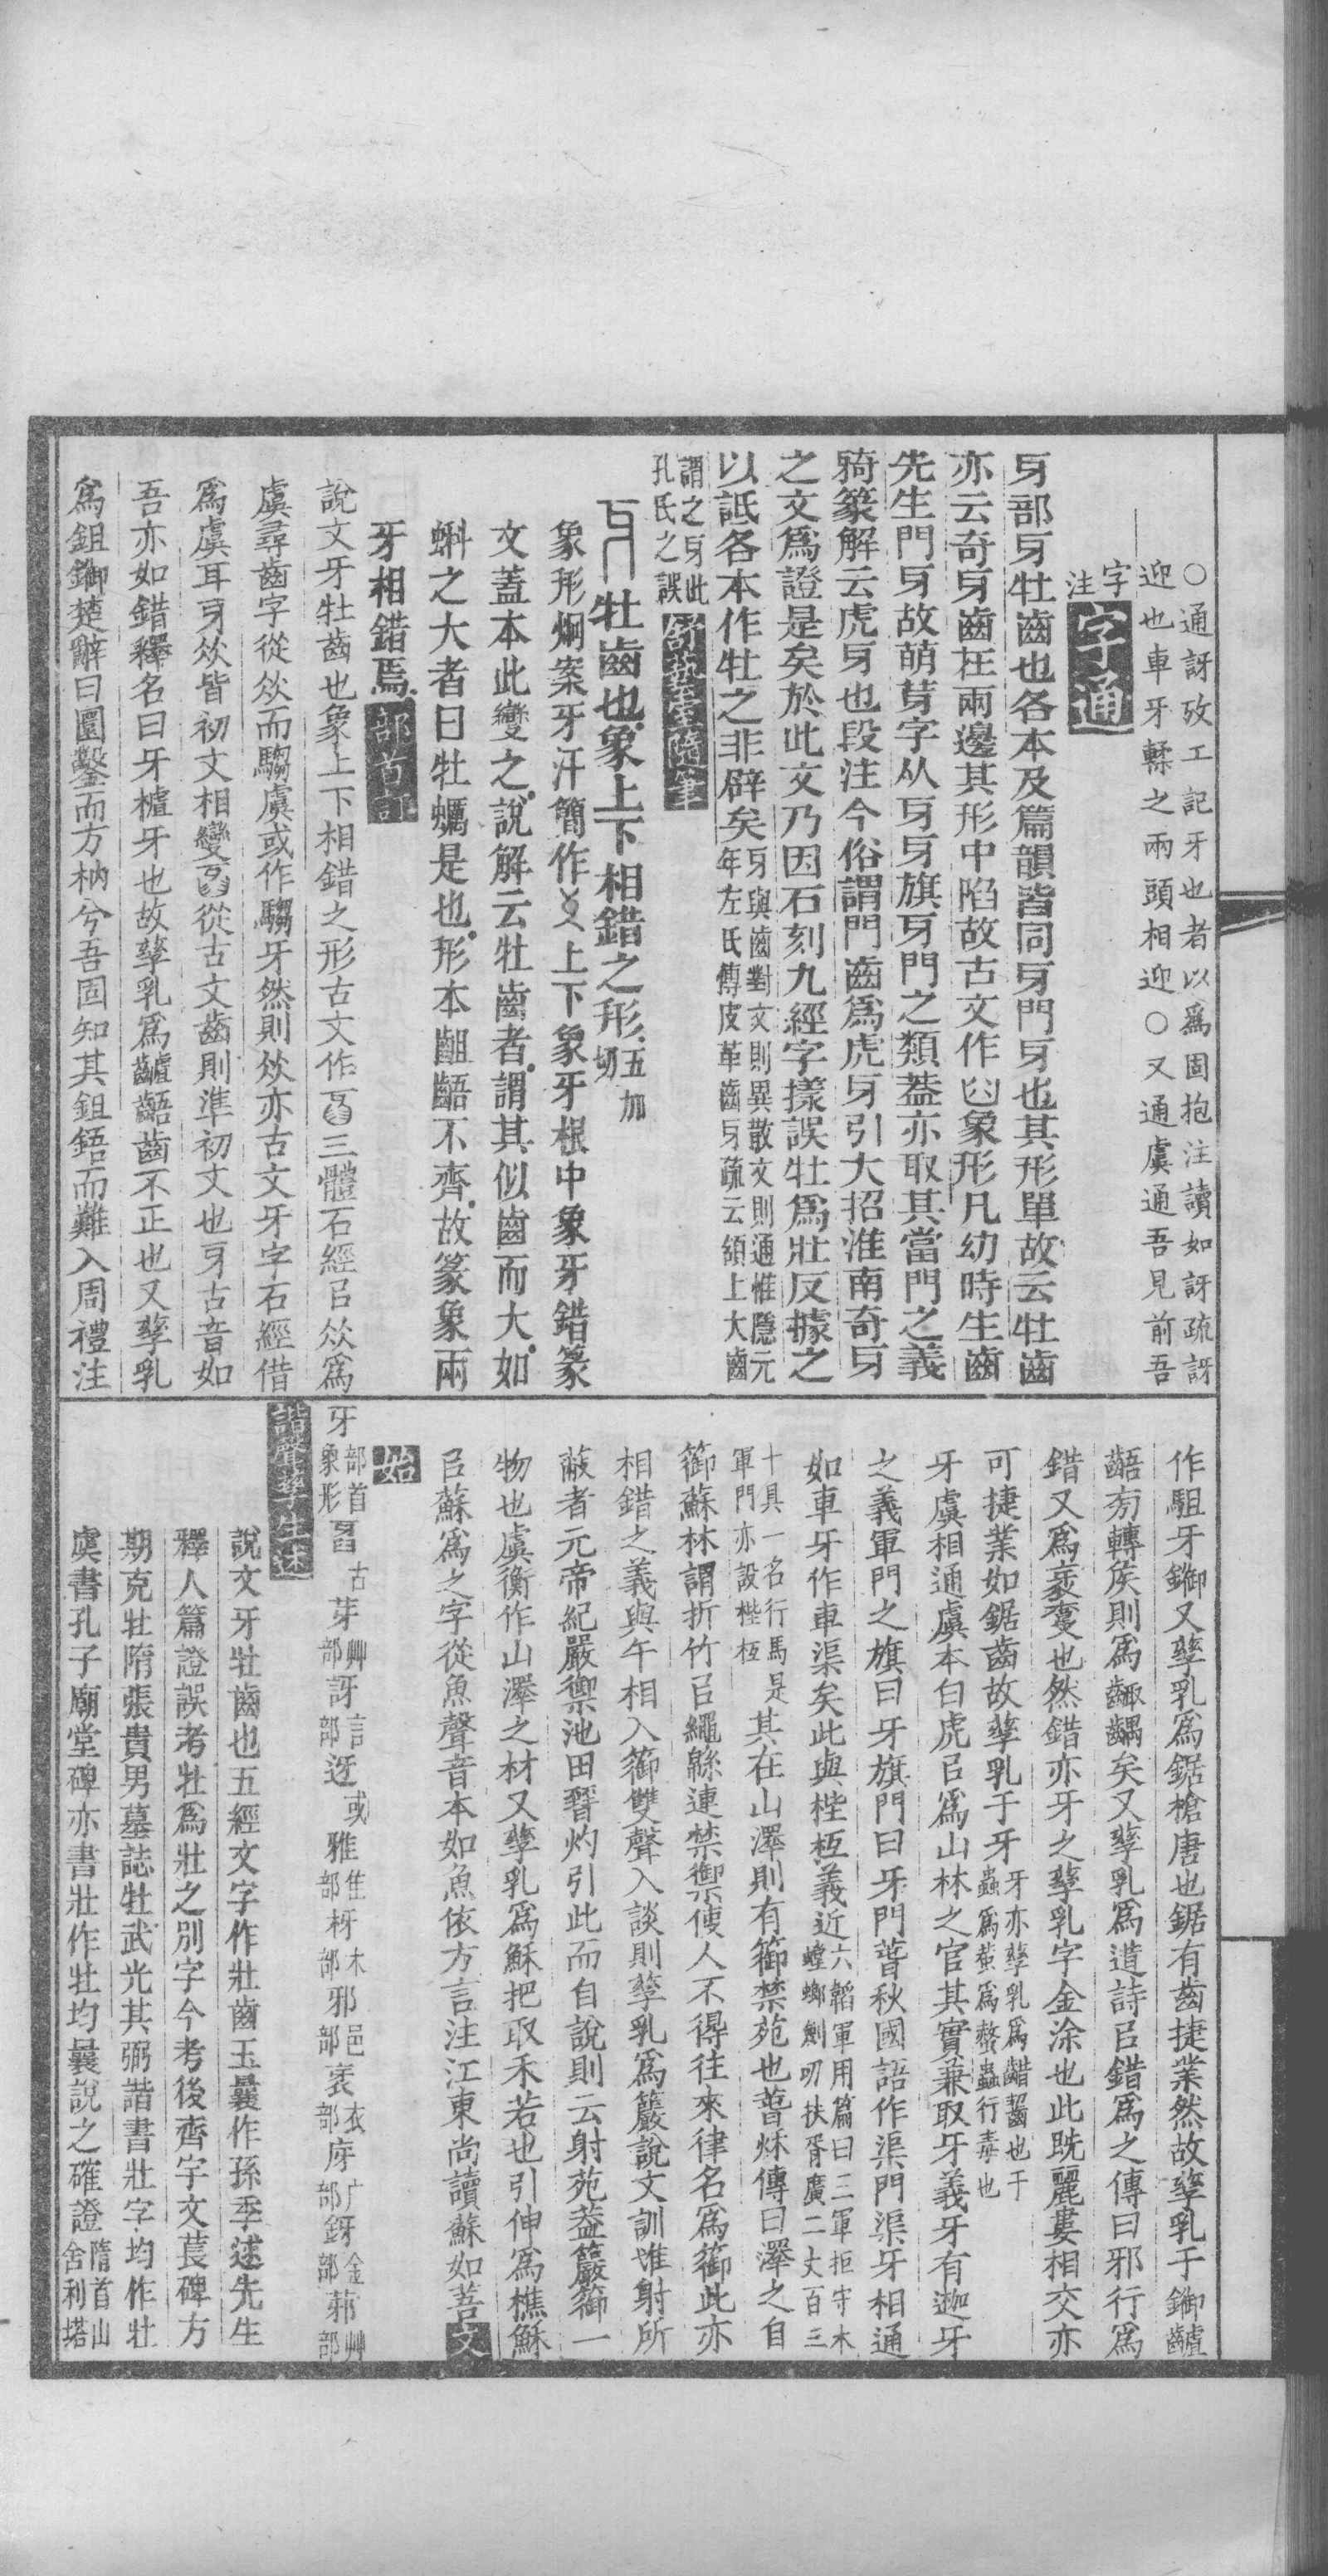 ○通訝攷工記牙也者以爲固抱注讀如訝疏訝
迎也車牙輮之兩頭相迎○又通虞通吾見前吾
字注 字通
㸦部㸦牡齒也各本及篇韻皆同㸦門㸦也其形單故云牡齒
亦云奇㸦齒在兩邊其形中陷故古文作象形凡幼時生齒
先生門㸦故萌芽字从㸦㸦旗㸦門之類蓋亦取其當門之義
騎篆解云虎㸦也段注今俗謂門齒爲虎㸦引大招淮南奇㸦
之文爲證是矣於此文乃因石刻九經字㨾誤牡爲壯反據之
以詆各本作牡之非辟矣㸦與齒對文則異散文則通惟隱元
年左氏傳皮革齒㸦疏云頷上大齒
謂之㸦此
孔氏之誤 舒蓺室隨筆
牡齒也象上下相錯之形五加切
象形炯案牙汗簡作上下象牙根中象牙錯篆
文蓋本此變之說解云牡齒者謂其似齒而大如
蝌之大者曰牡蠣是也形本齟齬不齊故篆象兩
牙相錯焉 部首訂
說文牙牡齒也象上下相錯之形古文作三體石經㠯㸚爲
虞尋齒字從㸚而騶虞或作騶牙然則㸚亦古文牙字石經借
爲虞耳㸦㸚皆初文相變從古文齒則準初文也㸦古音如
吾亦如錯釋名曰牙樝牙也故孳乳爲䶥齬齒不正也又孳乳
爲鉏鋙楚辭曰圜鑿而方枘兮吾固知其鉏鋙而難入周禮注
作駔牙鋙又孳乳爲鋸槍唐也鋸有齒捷業然故孳乳于鋙䶥
齬㫄轉矦則爲齱齵矣又孳乳爲䢒詩㠯錯爲之傳曰邪行爲
錯又爲袤也然錯亦牙之孳乳字金涂也此䟽麗婁相交亦
可捷業如鋸齒故孳乳于牙牙亦孳乳爲齰齧也于
蟲爲爲螫蟲行毒也
牙虞相通虞本白虎㠯爲山林之官其實兼取牙義牙有迦牙
之義軍門之旗曰牙旗門曰牙門晉秋國語作渠門渠牙相通
如車牙作車渠矣此與梐枑義近六韜軍用篇曰三軍拒守木
螳螂劍刃扶胥廣二丈百二
十具一名行馬是
軍門亦設梐枑 其在山澤則有籞禁苑也晉穌傳曰澤之自
籞蘇林謂折竹㠯繩緜連禁禦使人不得往來律名爲籞此亦
相錯之義與午相入籞雙聲入談則孳乳爲籞說文訓惟射所
蔽者元帝紀嚴禦池田晉灼引此而自說則云射苑蓋籞一
物也虞衡作山澤之材又孳乳爲穌把取禾若也引伸爲樵穌
㠯蘇爲之字從魚聲音本如魚依方言注江東尚讀蘇如䓊 文
始
牙部首象形 古芽艸部訝言部迓或雅隹部枒木部邪邑部衺衣部庌广部釾金部䓉艸部
諧聲孳生述
說文牙牡齒也五經文字作壯齒玉曩作孫季述先生
釋人篇證誤考牡爲壯之別字今考後齊宇文萇碑方
期克牡隋張貴男墓誌牡武光其弼諧書壯字均作牡
虞書孔子廟堂碑亦書壯作牡均曩說之確證隋首山
舍利塔